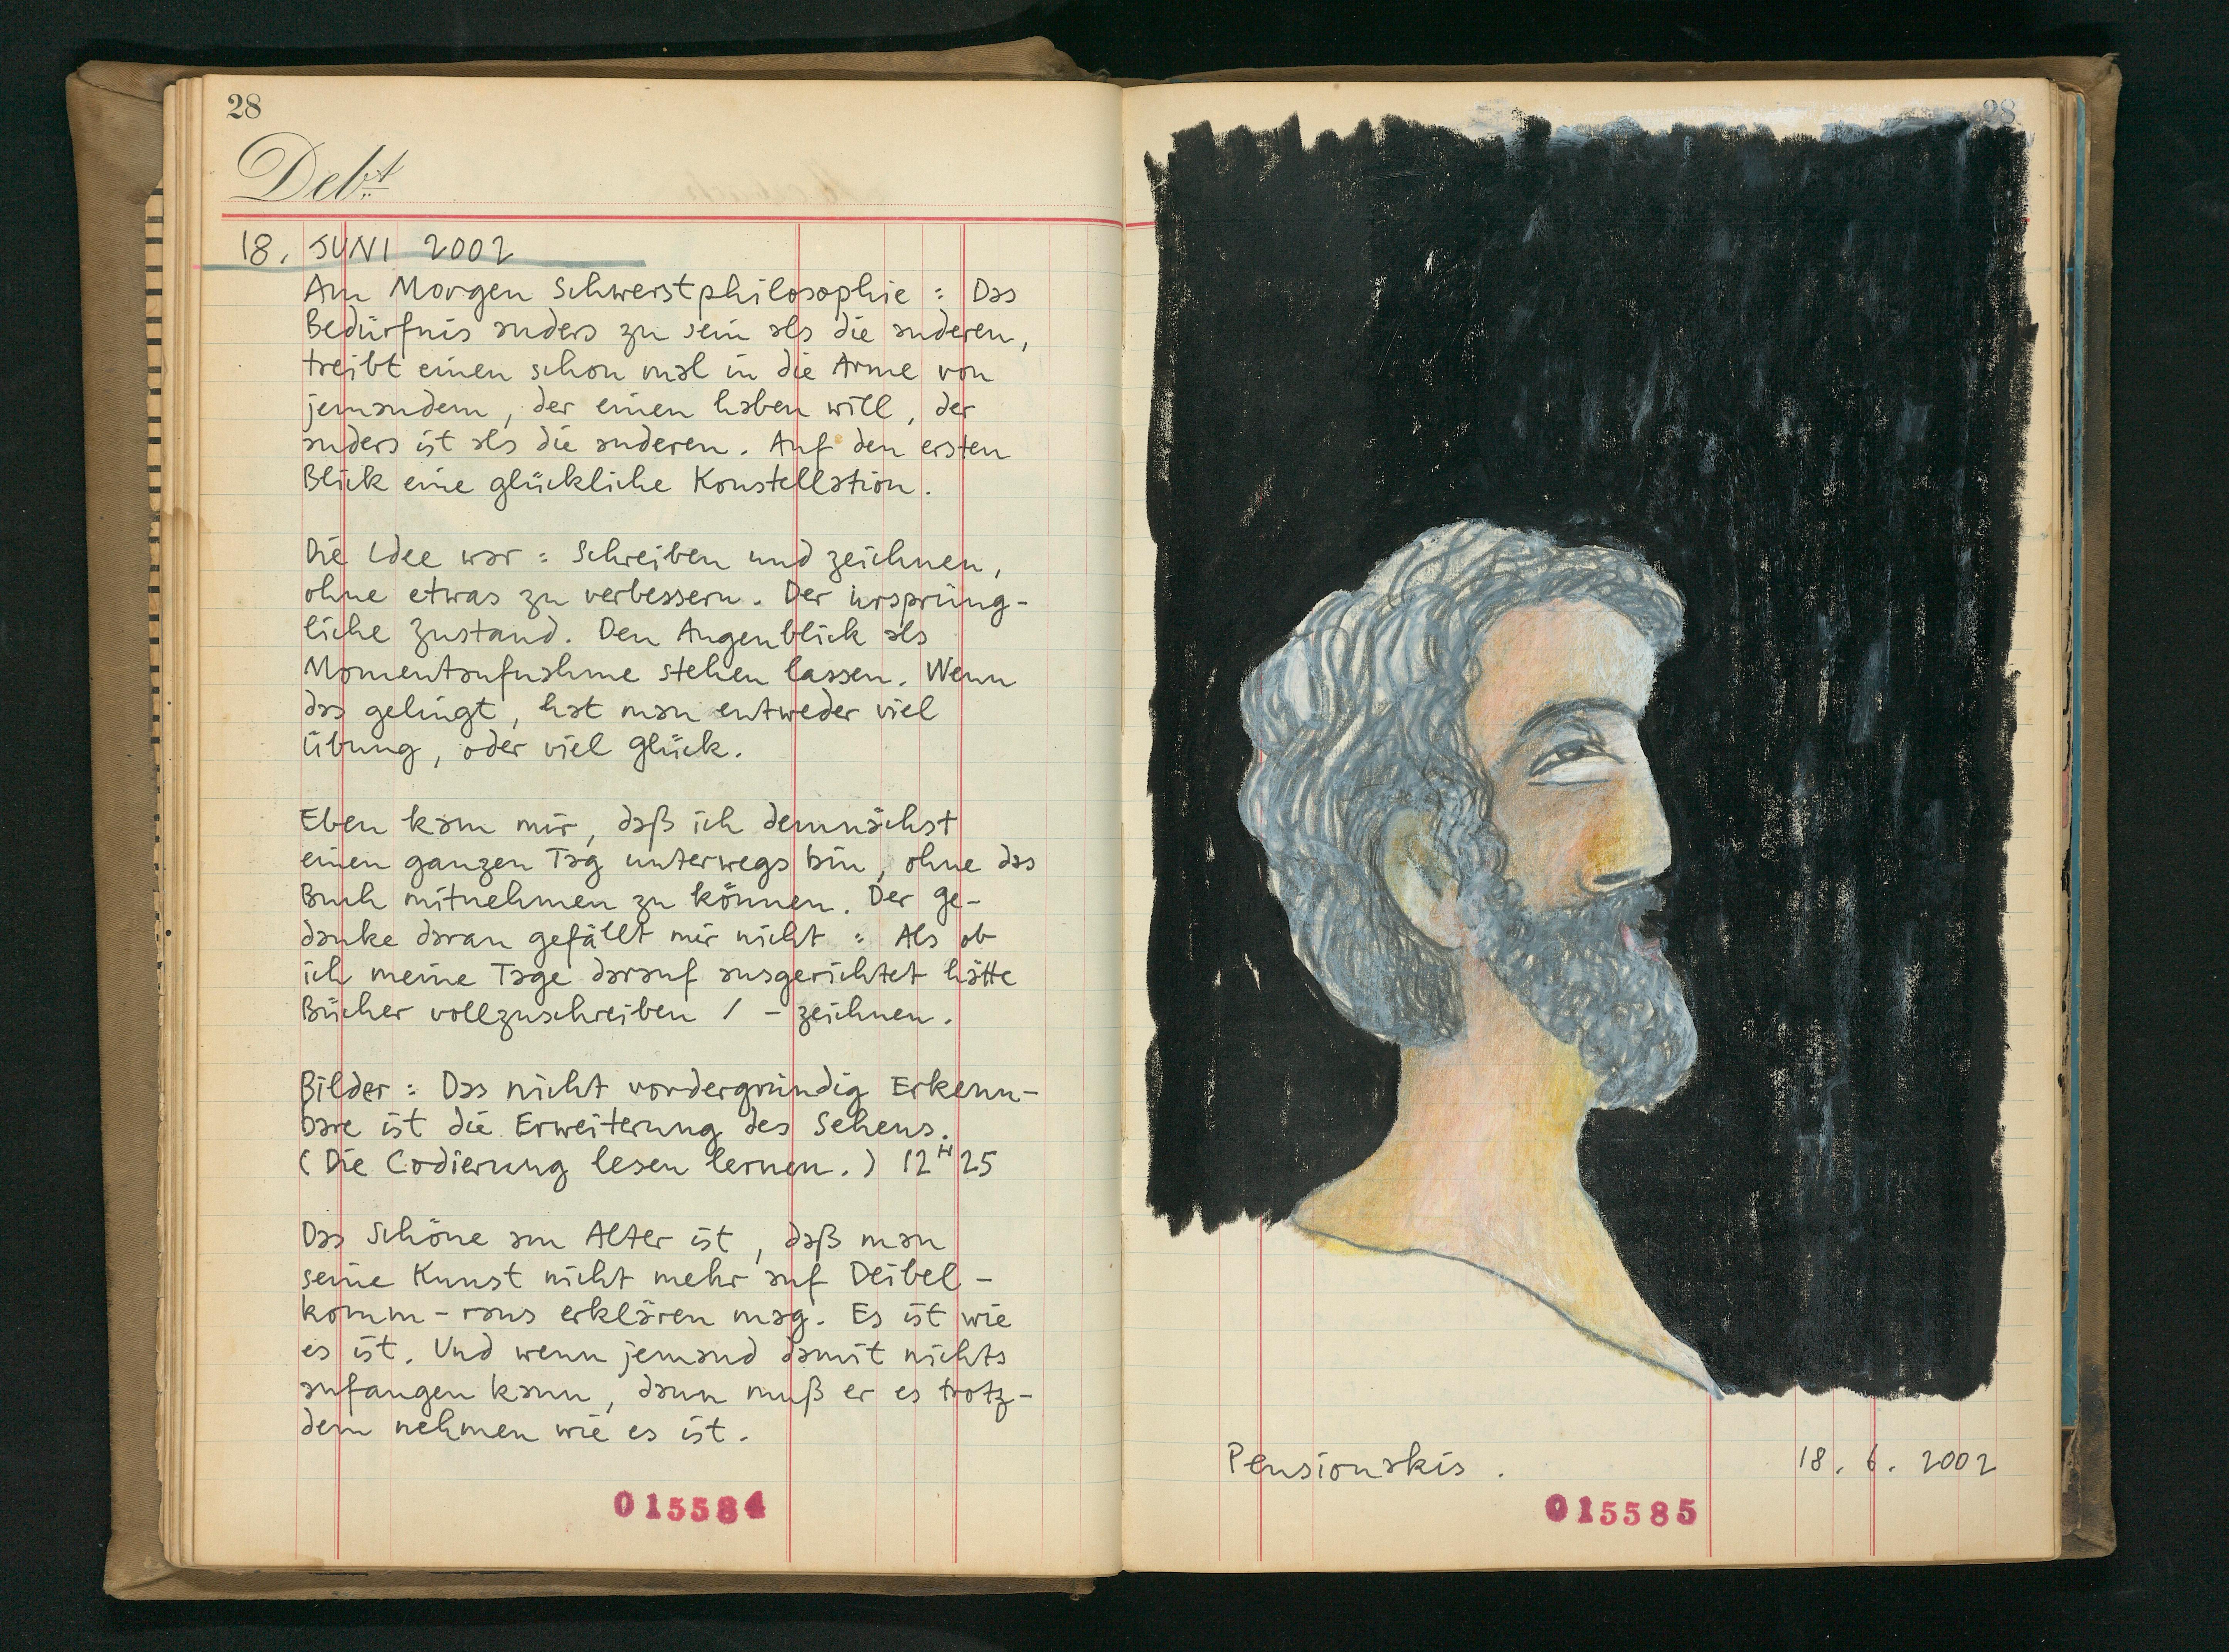 28
Debt
18. JUNI 2002
Am Morgen Schwerstphilosophie: Das
Bedürfnis anders zu sein als die anderen,
treibt einen schon mal in die Arme von
jemandem, der einen haben will, der
anders ist als die anderen. Auf den ersten
Blick eine glückliche Konstellation.
Die Idee war: Schreiben und zeichnen,
ohne etwas zu verbessern. Der ursprüng-
liche Zustand. Den Augenblick als
Momentaufnahme stehen lassen. Wenn
das gelingt, hat man entweder viel
Übung, oder viel Glück.
Eben kam mir, daß ich demnächst
einen ganzen Tag unterwegs bin, ohne das
Buch mitnehmen zu können. Der Ge-
danke daran gefällt mir nicht: Als ob
ich meine Tage darauf ausgerichtet hätte
Bücher vollzuschreiben / -zeichnen.
Bilder: Das nicht vordergründig Erkenn-
bare ist die Erweiterung des Sehens.
(Die Codierung lesen lernen.) 12H25
Das Schöne am Alter ist, daß man
seine Kunst nicht mehr auf Deibel-
komm-raus erklären mag. Es ist wie
es ist. Und wenn jemand damit nichts
anfangen kann, dann muß er es trotz-
dem nehmen wie es ist.
015584
28
Pensionakis.
18.6.2002
015585